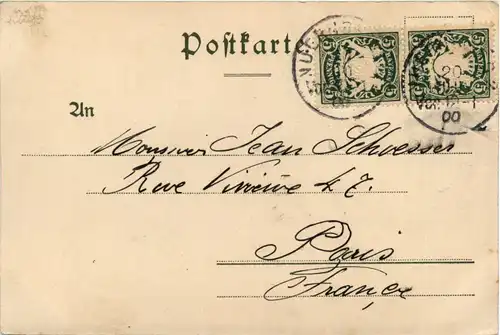 Postkarte
An
Monsieur Jean Schoesser
Rue Vivienne 47.
Paris
France